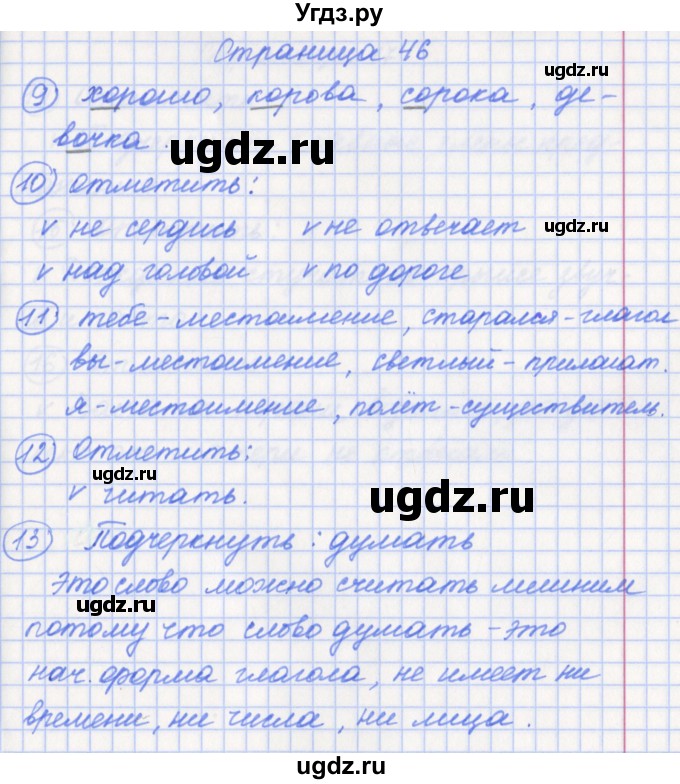 Угдз.ру
Страница 46
ugdz.ru
9 хорошо, корова, сорока, де-
вочка.
ugdz.ru
10 отметить:
v не сердись v не отвечает
ugdz.ru
v над головой v по дороге
11 тебе - местоимение, старался - глагол
вы - местоимение, светлый - прилагат.
я - местоимение, полёт - существитель.
12 Отметить:
ugdz.ru
v читать.
ugdz.ru
13 Подчеркнуть: думать
Это слово можно считать лишним
ugdz.ru
потому что слово думать - это
нач. форма глагола, не имеет ни
времени, ни числа, ни лица.
ugdz.ru